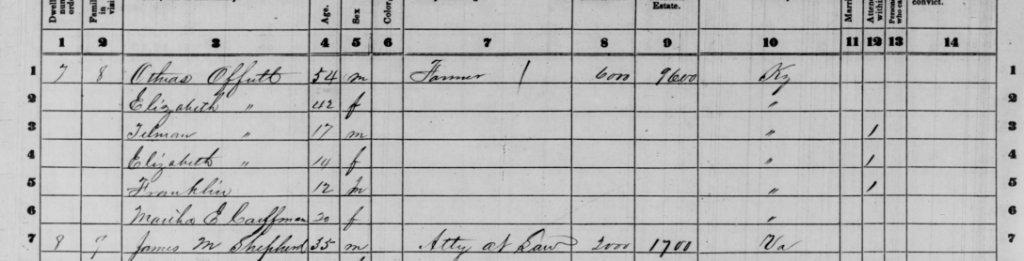 Dwell
num
order
Famil
in
visi
Age.
Sex
Color,
Estate.
Marri
Atten
within
Person
who ca
convict.
1 2 3 4 5 6 7 8 9 10 11 12 13 14
1 7 8 Othias Offutt 54 m Farmer / 6000 9600 Ky 1
2 Elizabeth " 42 f " 2
3 Tilman " 17 m " / 3
4 Elizabeth " 14 f " / 4
5 Franklin 12 m " / 5
6 Martha E Cauffman 20 f " 6
7 8 9 James M Shepherd 35 m Atty at Law 2000 1700 Va 7